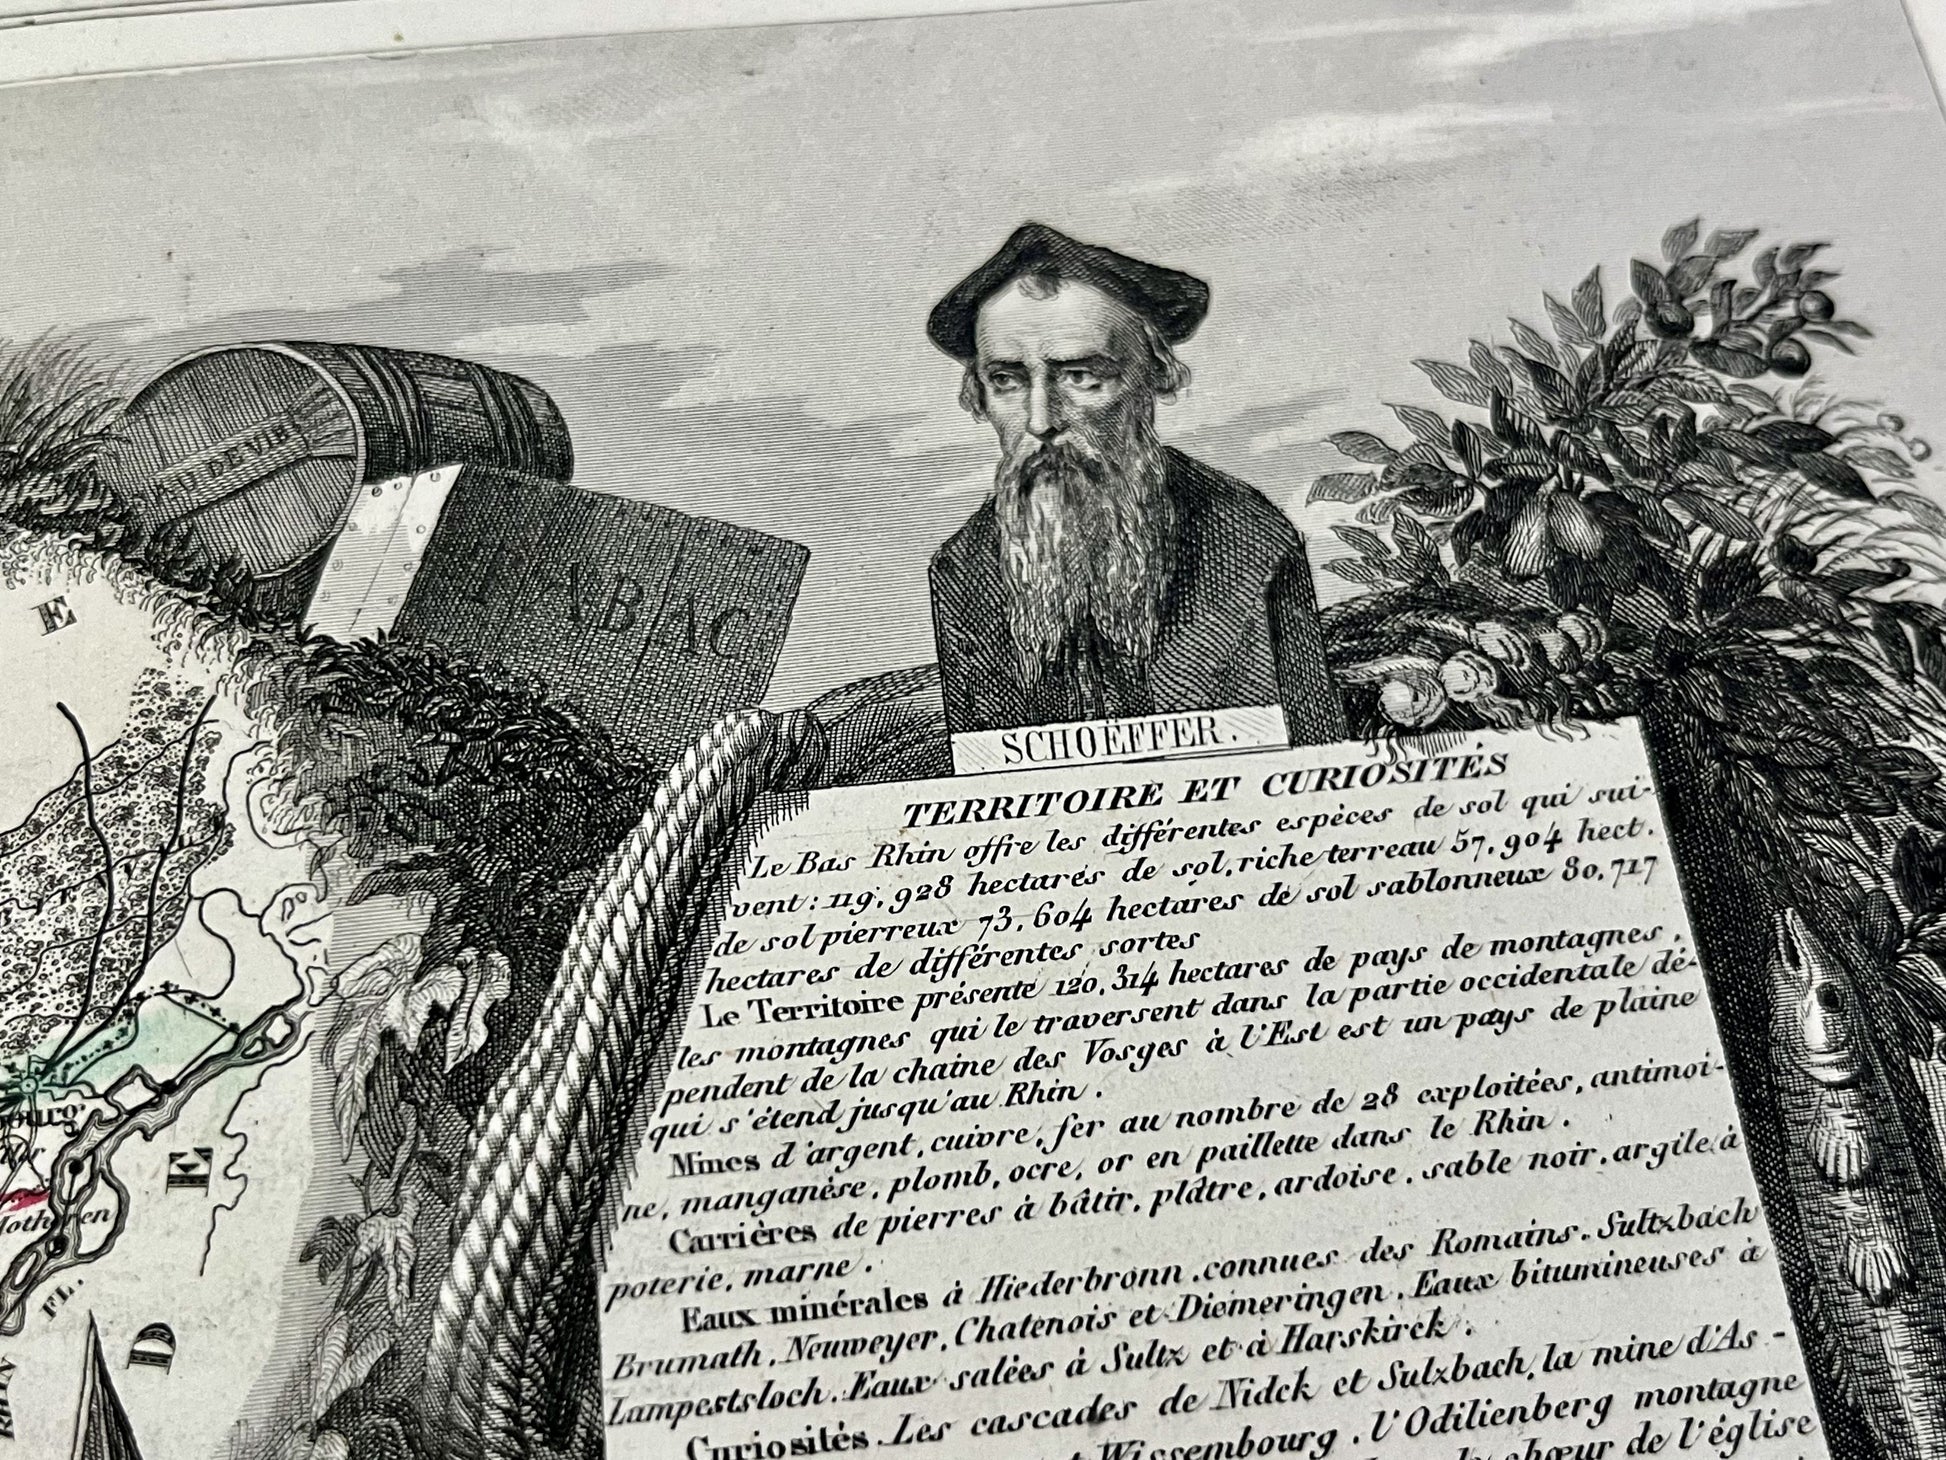 EAU DE VIE
TABAC
SCHOËFFER.
TERRITOIRE ET CURIOSITÉS
Le Bas Rhin offre les différentes espèces de sol qui sui-
vent: 119,928 hectares de sol, riche terreau 57,904 hect.
de sol pierreux 73,604 hectares de sol sablonneux 80,717
hectares de différentes sortes
Le Territoire présente 120,314 hectares de pays de montagnes,
les montagnes qui le traversent dans la partie occidentale dé-
pendent de la chaine des Vosges à l'Est est un pays de plaine
qui s'étend jusqu'au Rhin.
Mines d'argent, cuivre, fer au nombre de 28 exploitées, antimoi-
ne, manganèse, plomb, ocre, or en paillette dans le Rhin.
Carrières de pierres à bâtir, plâtre, ardoise, sable noir, argile à
poterie, marne.
Eaux minérales à Niederbronn, connues des Romains. Sultzbach
Brumath, Neuweyer, Chatenois et Diemeringen. Eaux bitumineuses à
Lampestsloch. Eaux salées à Sultz et à Harskirck.
Curiosités. Les cascades de Nidek et Sulzbach, la mine d'As-
Wissembourg, l'Odilienberg montagne
chœur de l'église
E
E
D
ourg
FL.
RHIN